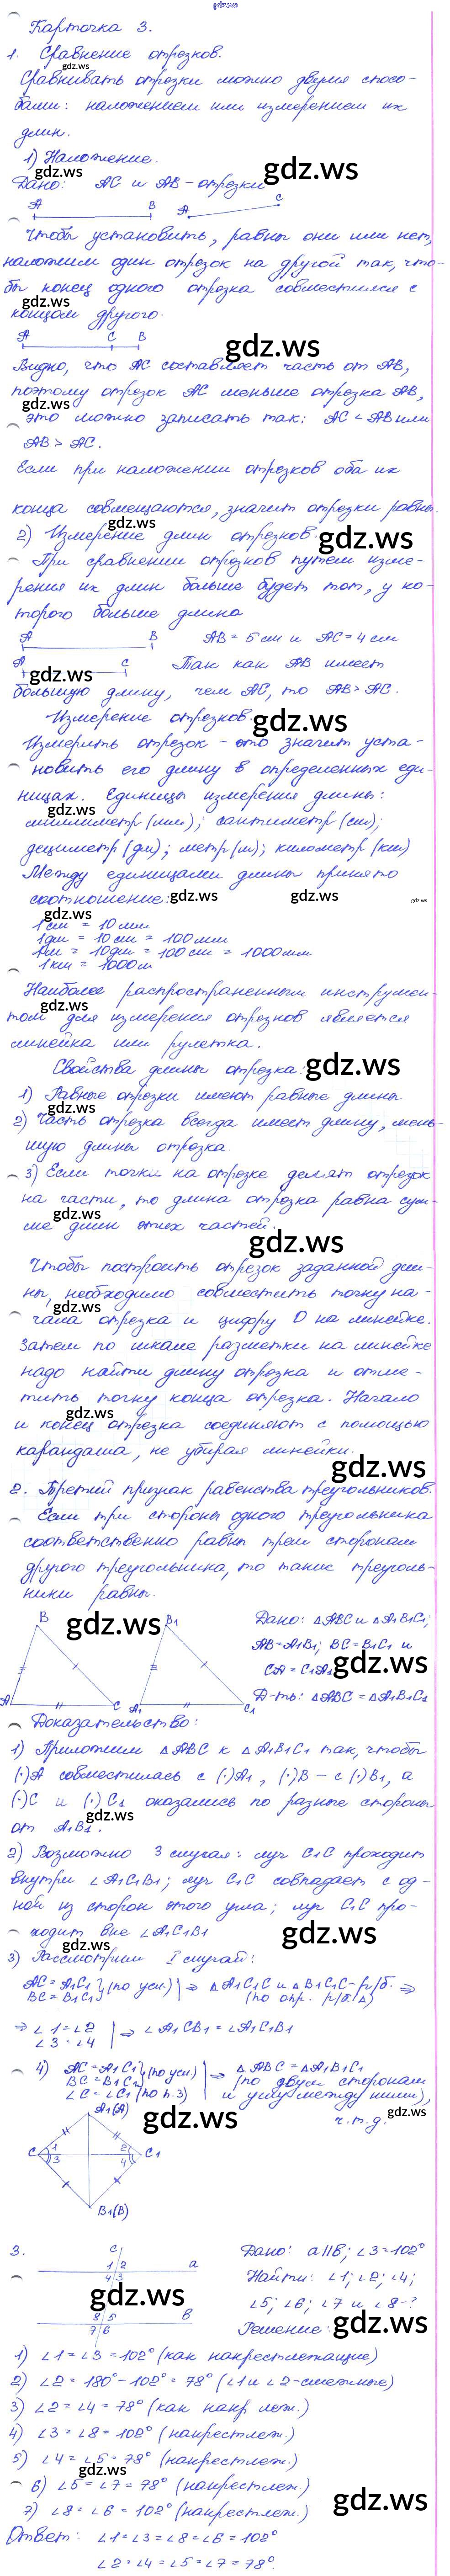 gdz.ws
Карточка 3.
1. Сравнение отрезков.
gdz.ws
Сравнивать отрезки можно двумя спосо-
бами: наложением или измерением их
длин.
1) Наложение.
gdz.ws gdz.ws
Дано: AC и AB - отрезки
A B A C
Чтобы установить, равны они или нет,
наложим один отрезок на другой так, что-
бы конец одного отрезка совместился с
gdz.ws
концом другого.
A C B gdz.ws
Видно, что AC составляет часть от AB,
поэтому отрезок AC меньше отрезка AB,
gdz.ws
это можно записать так: AC < AB или
AB > AC.
Если при наложении отрезков оба их
конца совмещаются, значит отрезки равны.
gdz.ws
2) Измерение длин отрезков.
gdz.ws
При сравнении отрезков путем изме-
рения их длин больше будет тот, у ко-
торого больше длина
A B AB = 5 см и AC = 4 см
A C Так как AB имеет
gdz.ws
большую длину, чем AC, то AB > AC.
Измерение отрезков.
gdz.ws
Измерить отрезок - это значит уста-
новить его длину в определенных еди-
ницах. Единицы измерения длины:
gdz.ws
миллиметр (мм); сантиметр (см);
дециметр (дм); метр (м); километр (км)
Между единицами длины принято
соотношение: gdz.ws gdz.ws gdz.ws
gdz.ws
1 см = 10 мм
1 дм = 10 см = 100 мм
1 м = 10 дм = 100 см = 1000 мм
1 км = 1000 м
Наиболее распространенным инструмен-
gdz.ws
том для измерения отрезков является
линейка или рулетка.
Свойства длины отрезка: gdz.ws
1) Равные отрезки имеют равные длины
gdz.ws
2) Часть отрезка всегда имеет длину, мень-
шую длины отрезка.
3) Если точки на отрезке делят отрезок
на части, то длина отрезка равна сум-
gdz.ws
ме длин этих частей.
gdz.ws
Чтобы построить отрезок заданной дли-
ны, необходимо совместить точку на-
чала отрезка и цифру 0 на линейке.
Затем по шкале разметки на линейке
надо найти длину отрезка и отме-
тить точку конца отрезка. Начало
gdz.ws
и конец отрезка соединяют с помощью
карандаша, не убирая линейки.
gdz.ws
2. Третий признак равенства треугольников.
Если три стороны одного треугольника
соответственно равны трем сторонам
другого треугольника, то такие треуголь-
ники равны.
B gdz.ws B1 Дано: △ABC и △A1B1C1;
AB = A1B1; BC = B1C1 и
CA = C1A1 gdz.ws
A C A1 C1 Д-ть: △ABC = △A1B1C1
Доказательство:
1) Приложим △ABC к △A1B1C1 так, чтобы
(·)A совместилась с (·)A1, (·)B - с (·)B1, а
(·)C и (·)C1 оказались по разные стороны
gdz.ws
от A1B1.
2) Возможно 3 случая: луч C1C проходит
внутри ∠A1C1B1; луч C1C совпадает с од-
ной из сторон этого угла; луч C1C про-
ходит вне ∠A1C1B1 gdz.ws
gdz.ws
3) Рассмотрим I случай:
AC = A1C1 } (по усл.) | ⇒ △A1C1C и △B1C1C - р/б. ⇒
BC = B1C1 (по опр. р/б △)
⇒ ∠1 = ∠2 | ⇒ ∠A1CB1 = ∠A1C1B1
∠3 = ∠4
4) AC = A1C1 } (по усл) | ⇒ △ABC = △A1B1C1
BC = B1C1 (по двум сторонам
∠C = ∠C1 (по п.3) и углу между ними),
A1(A) gdz.ws gdz.ws
ч.т.д.
C 1 2 C1
3 4
B1(B)
3. c Дано: a∥b; ∠3 = 102°
1 2 a
4 3 Найти: ∠1; ∠2; ∠4;
gdz.ws ∠5; ∠6; ∠7 и ∠8 - ?
8 5 b
7 6 Решение: gdz.ws
1) ∠1 = ∠3 = 102° (как накрестлежащие)
2) ∠2 = 180° - 102° = 78° (∠1 и ∠2 - смежные)
3) ∠2 = ∠4 = 78° (как накр. леж.)
4) ∠3 = ∠8 = 102° (накрестлеж.)
5) ∠4 = ∠5 = 78° (накрестлеж.)
gdz.ws
6) ∠5 = ∠7 = 78° (накрестлеж.)
7) ∠8 = ∠6 = 102° (накрестлеж.) gdz.ws
Ответ: ∠1 = ∠3 = ∠8 = ∠6 = 102°
∠2 = ∠4 = ∠5 = ∠7 = 78°.